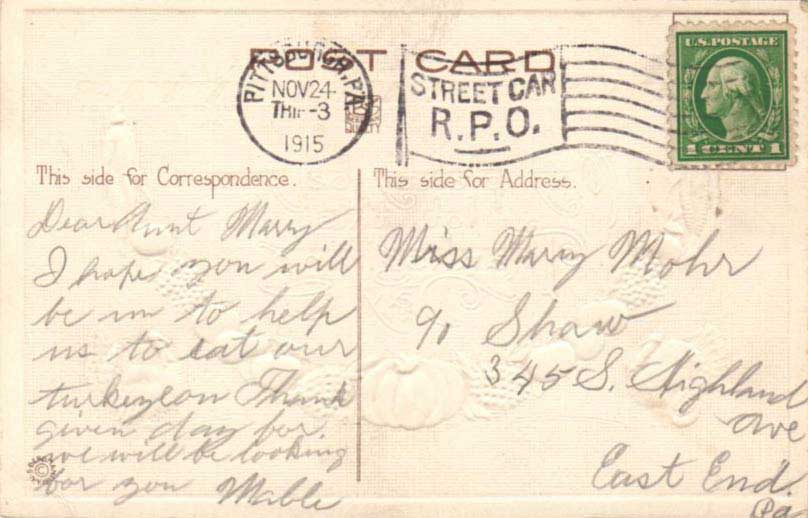 POST CARD
PITTSBURGH, PA.
NOV 24
TRIP-3
1915
STREET CAR
R.P.O.
U.S. POSTAGE
1 CENT 1
This side for Correspondence.
This side for Address.
Dear Aunt Marry
I hope you will
be in to help
us to eat our
turkey on Thank
given day for
we will be looking
for you Mable
Miss Marry Mohr
c/o Shaw
345 S. Highland
Ave
East End.
Pa